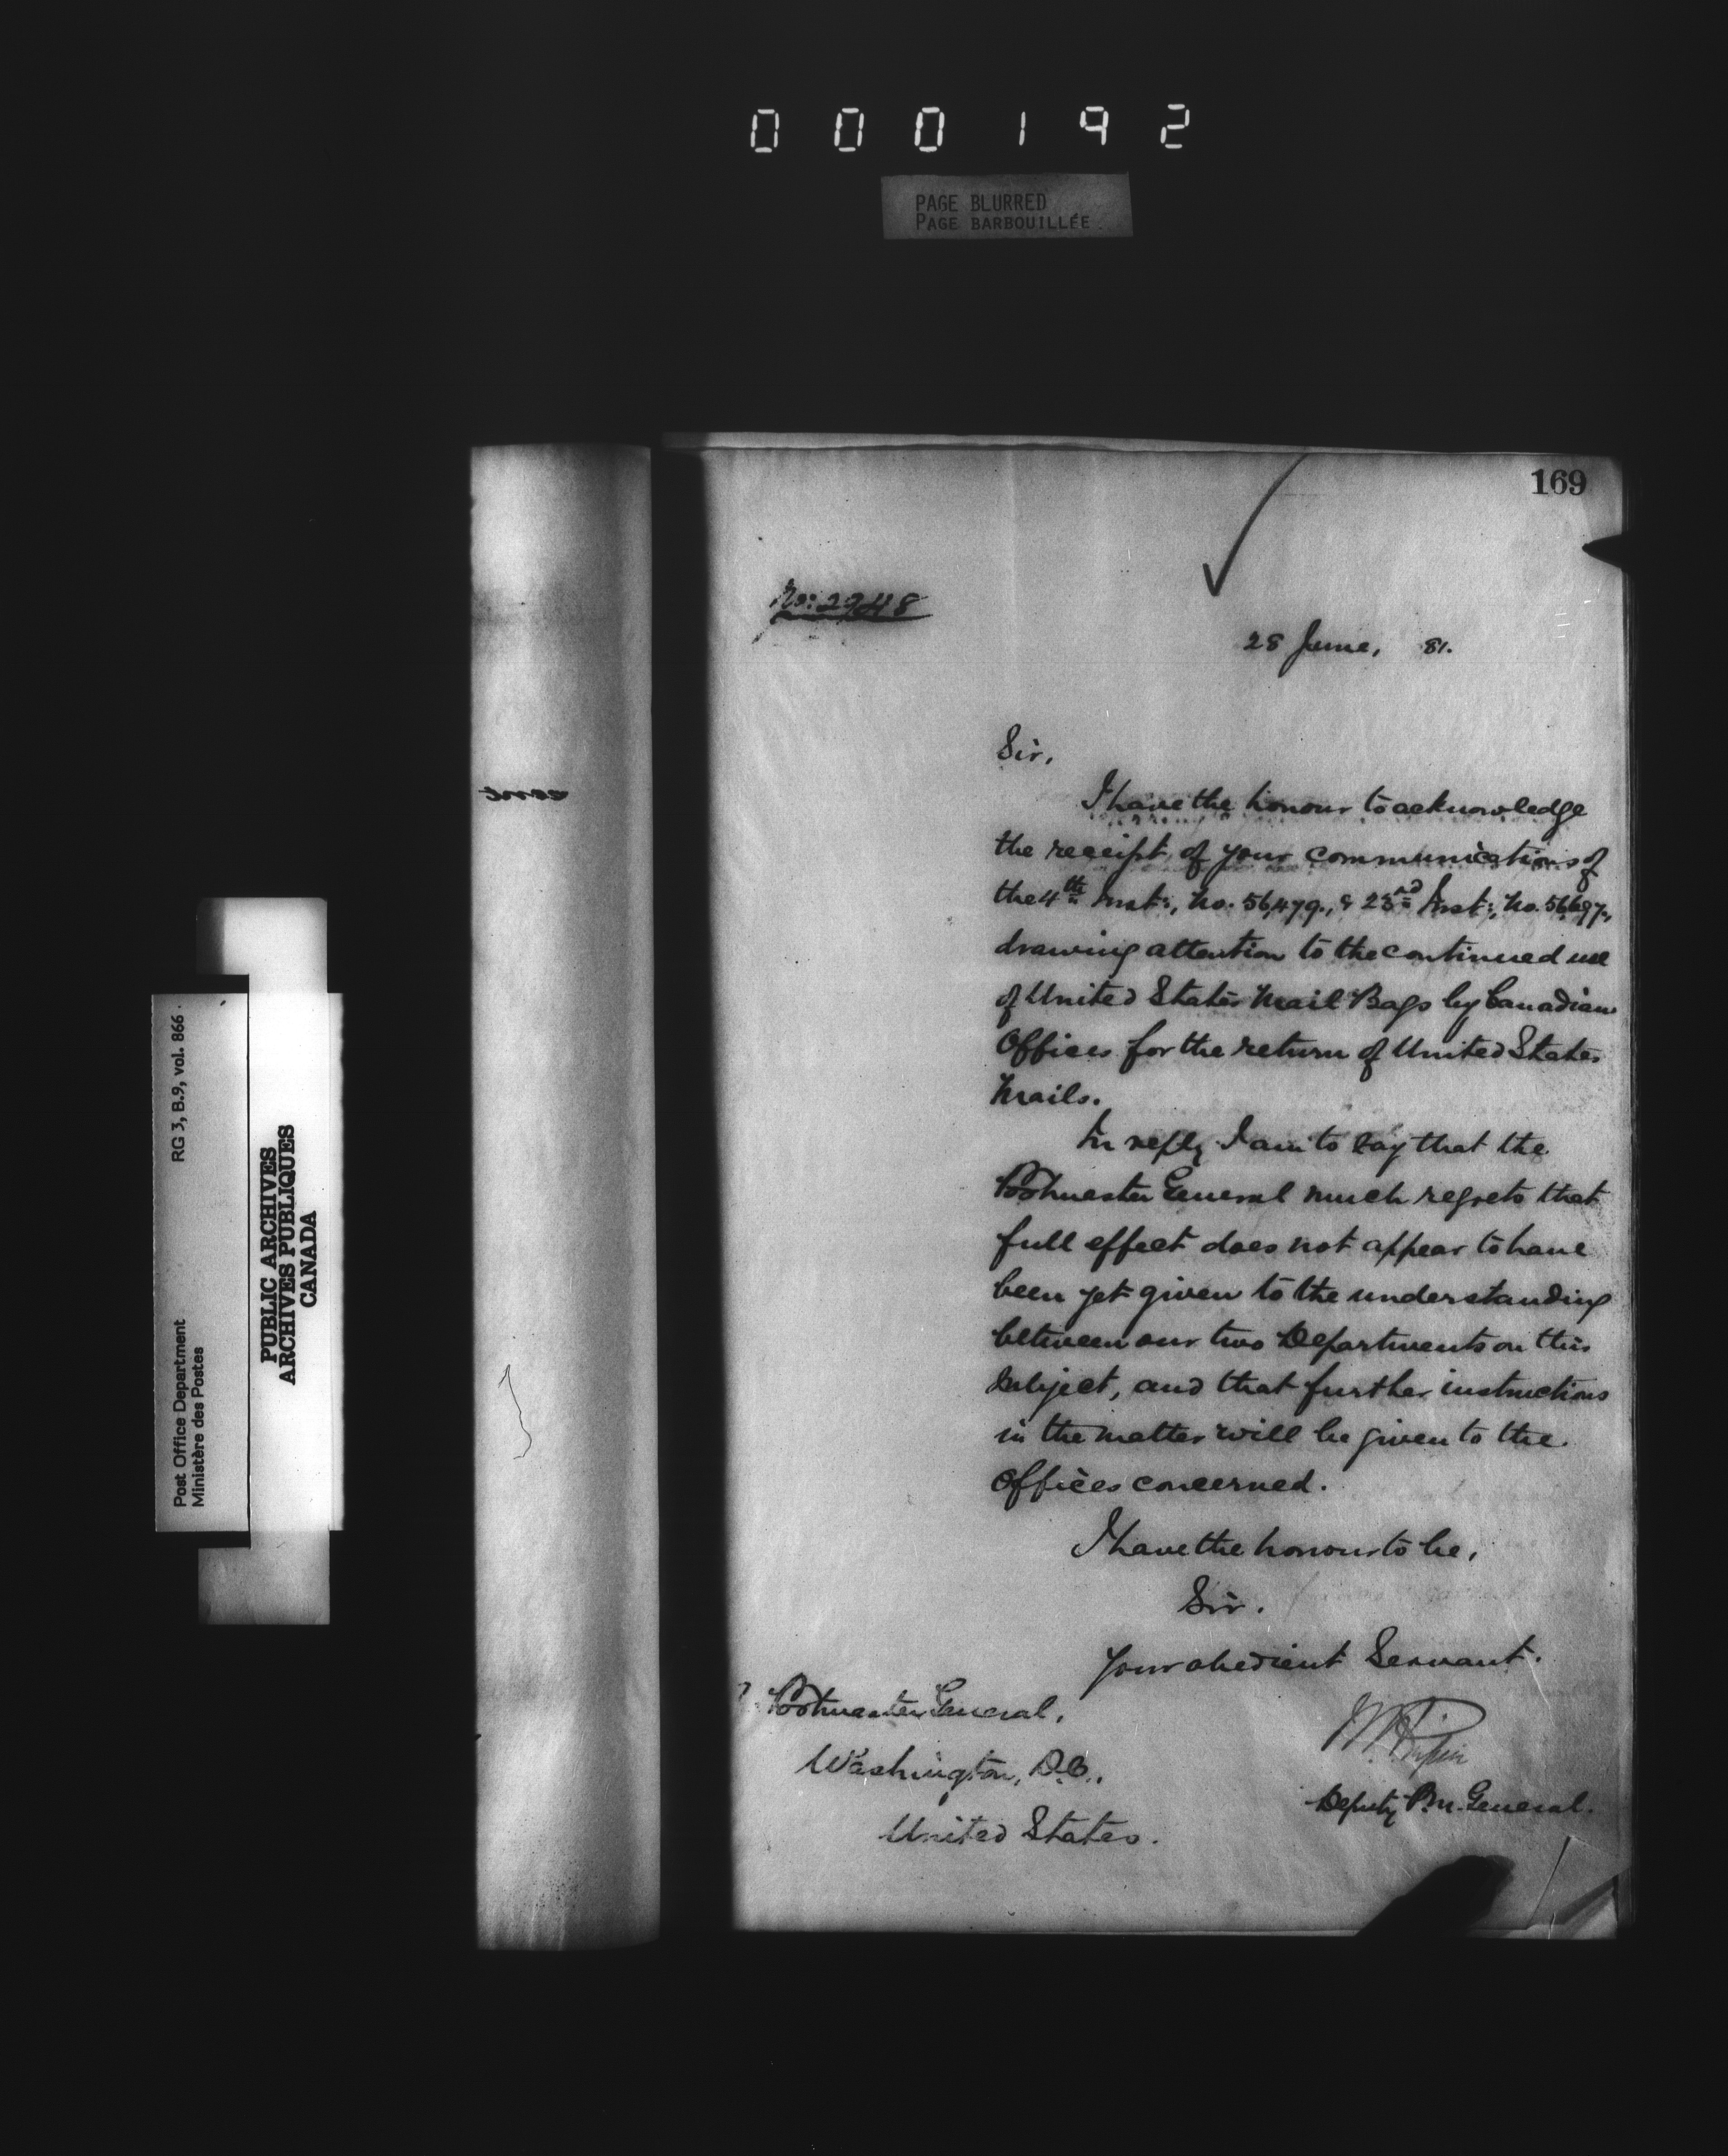 000192
PAGE BLURRED
PAGE BARBOUILLÉE
169
No: 2948
28 June, 81.
Sir,
I have the honour to acknowledge
the receipt of your communications of
the 4th Inst:, No. 56,479., & 23rd Inst:, No. 56697.,
drawing attention to the continued use
of United States Mail Bags by Canadian
Offices for the return of United States
Mails.
In reply I am to say that the
Postmaster General much regrets that
full effect does not appear to have
been yet given to the understanding
between our two Departments on this
subject, and that further instructions
in the matter will be given to the
Offices concerned.
I have the honour to be,
Sir.
Your obedient Servant.
Deputy P.M. General.
Postmaster General,
Washington, D.C.,
United States.
Post Office Department
Ministère des Postes
RG 3, B.9, vol. 866
PUBLIC ARCHIVES
ARCHIVES PUBLIQUES
CANADA